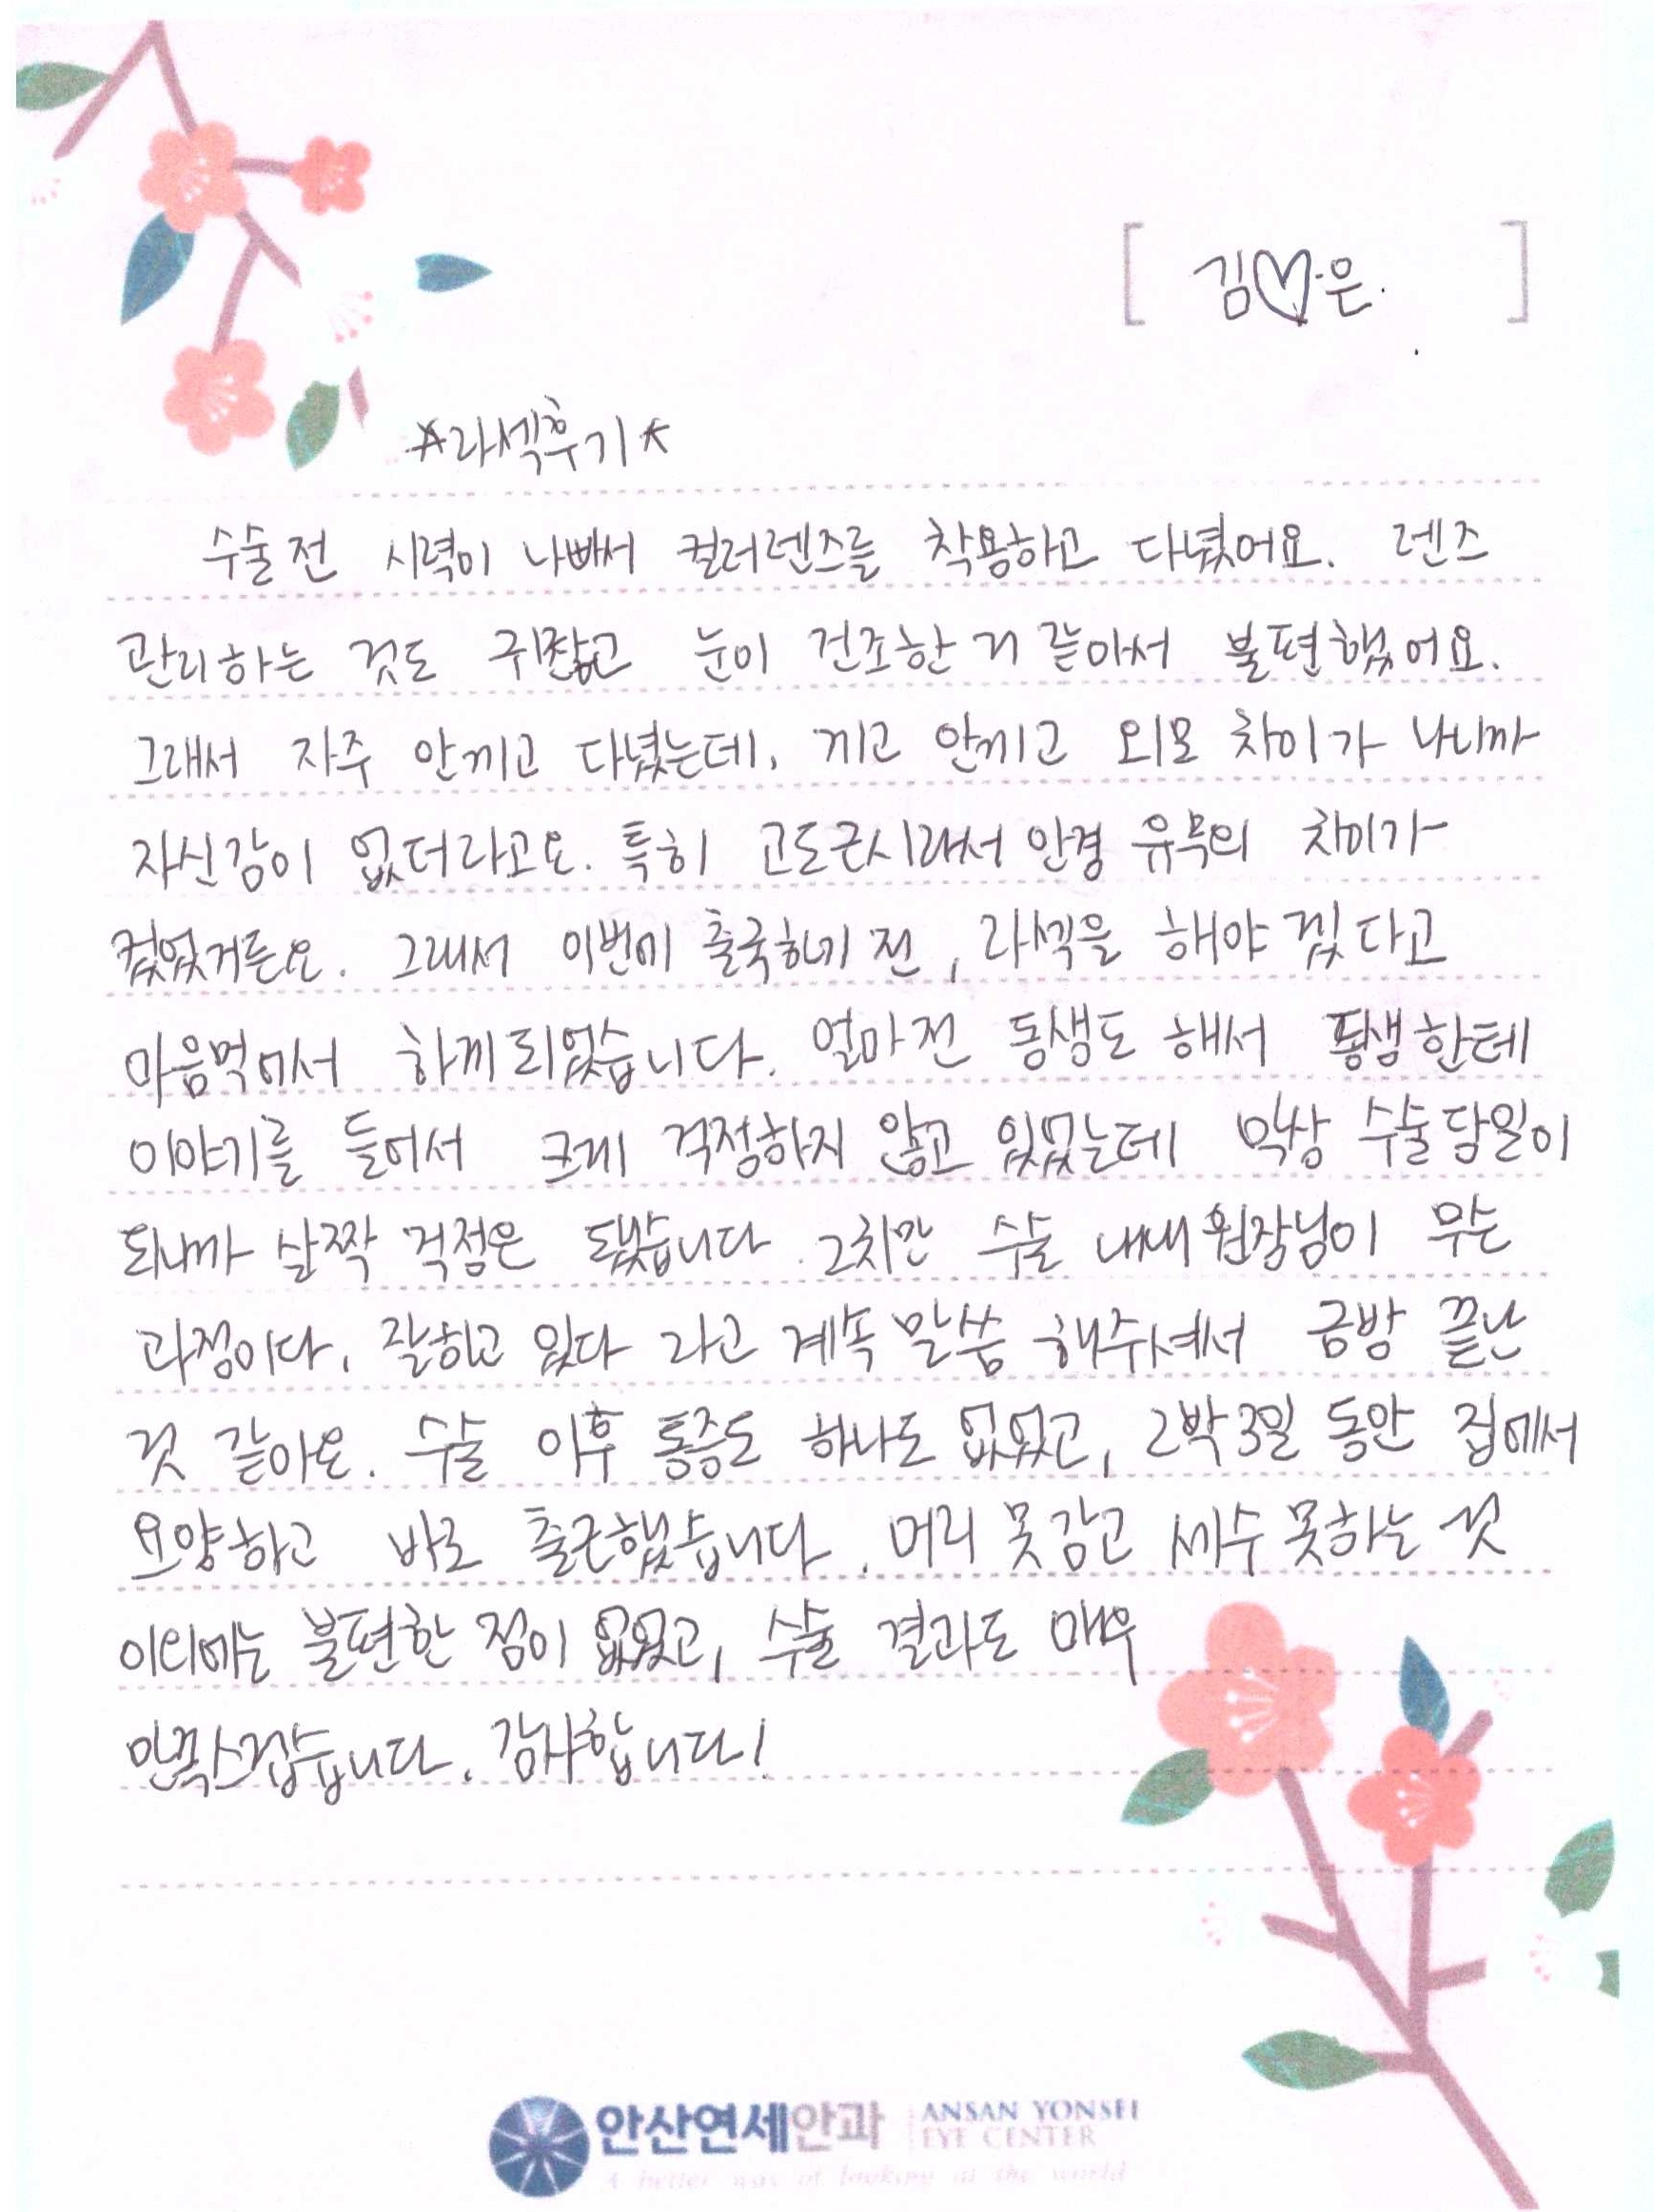 [ 김♡은. ]
☆라섹후기☆
수술전 시력이 나빠서 컬러렌즈를 착용하고 다녔어요. 렌즈
관리하는 것도 귀찮고 눈이 건조한 거 같아서 불편했어요.
그래서 자주 안끼고 다녔는데, 끼고 안끼고 외모 차이가 나니까
자신감이 없더라고요. 특히 고도근시라서 안경 유무의 차이가
컸었거든요. 그래서 이번에 출국하기 전, 라섹을 해야겠다고
마음먹어서 하게되었습니다. 얼마전 동생도 해서 동생한테
이야기를 들어서 크게 걱정하지 않고 있었는데 막상 수술당일이
되니까 살짝 걱정은 됐습니다. 그치만 수술 내내 원장님이 무슨
과정이다, 잘하고 있다 라고 계속 말씀 해주셔서 금방 끝난
것 같아요. 수술 이후 통증도 하나도 없었고, 2박3일 동안 집에서
요양하고 바로 출근했습니다. 머리 못감고 세수 못하는 것
이외에는 불편한 점이 없었고, 수술 결과도 매우
만족스럽습니다. 감사합니다!
안산연세안과 ANSAN YONSEI
EYE CENTER
A better way of looking at the world